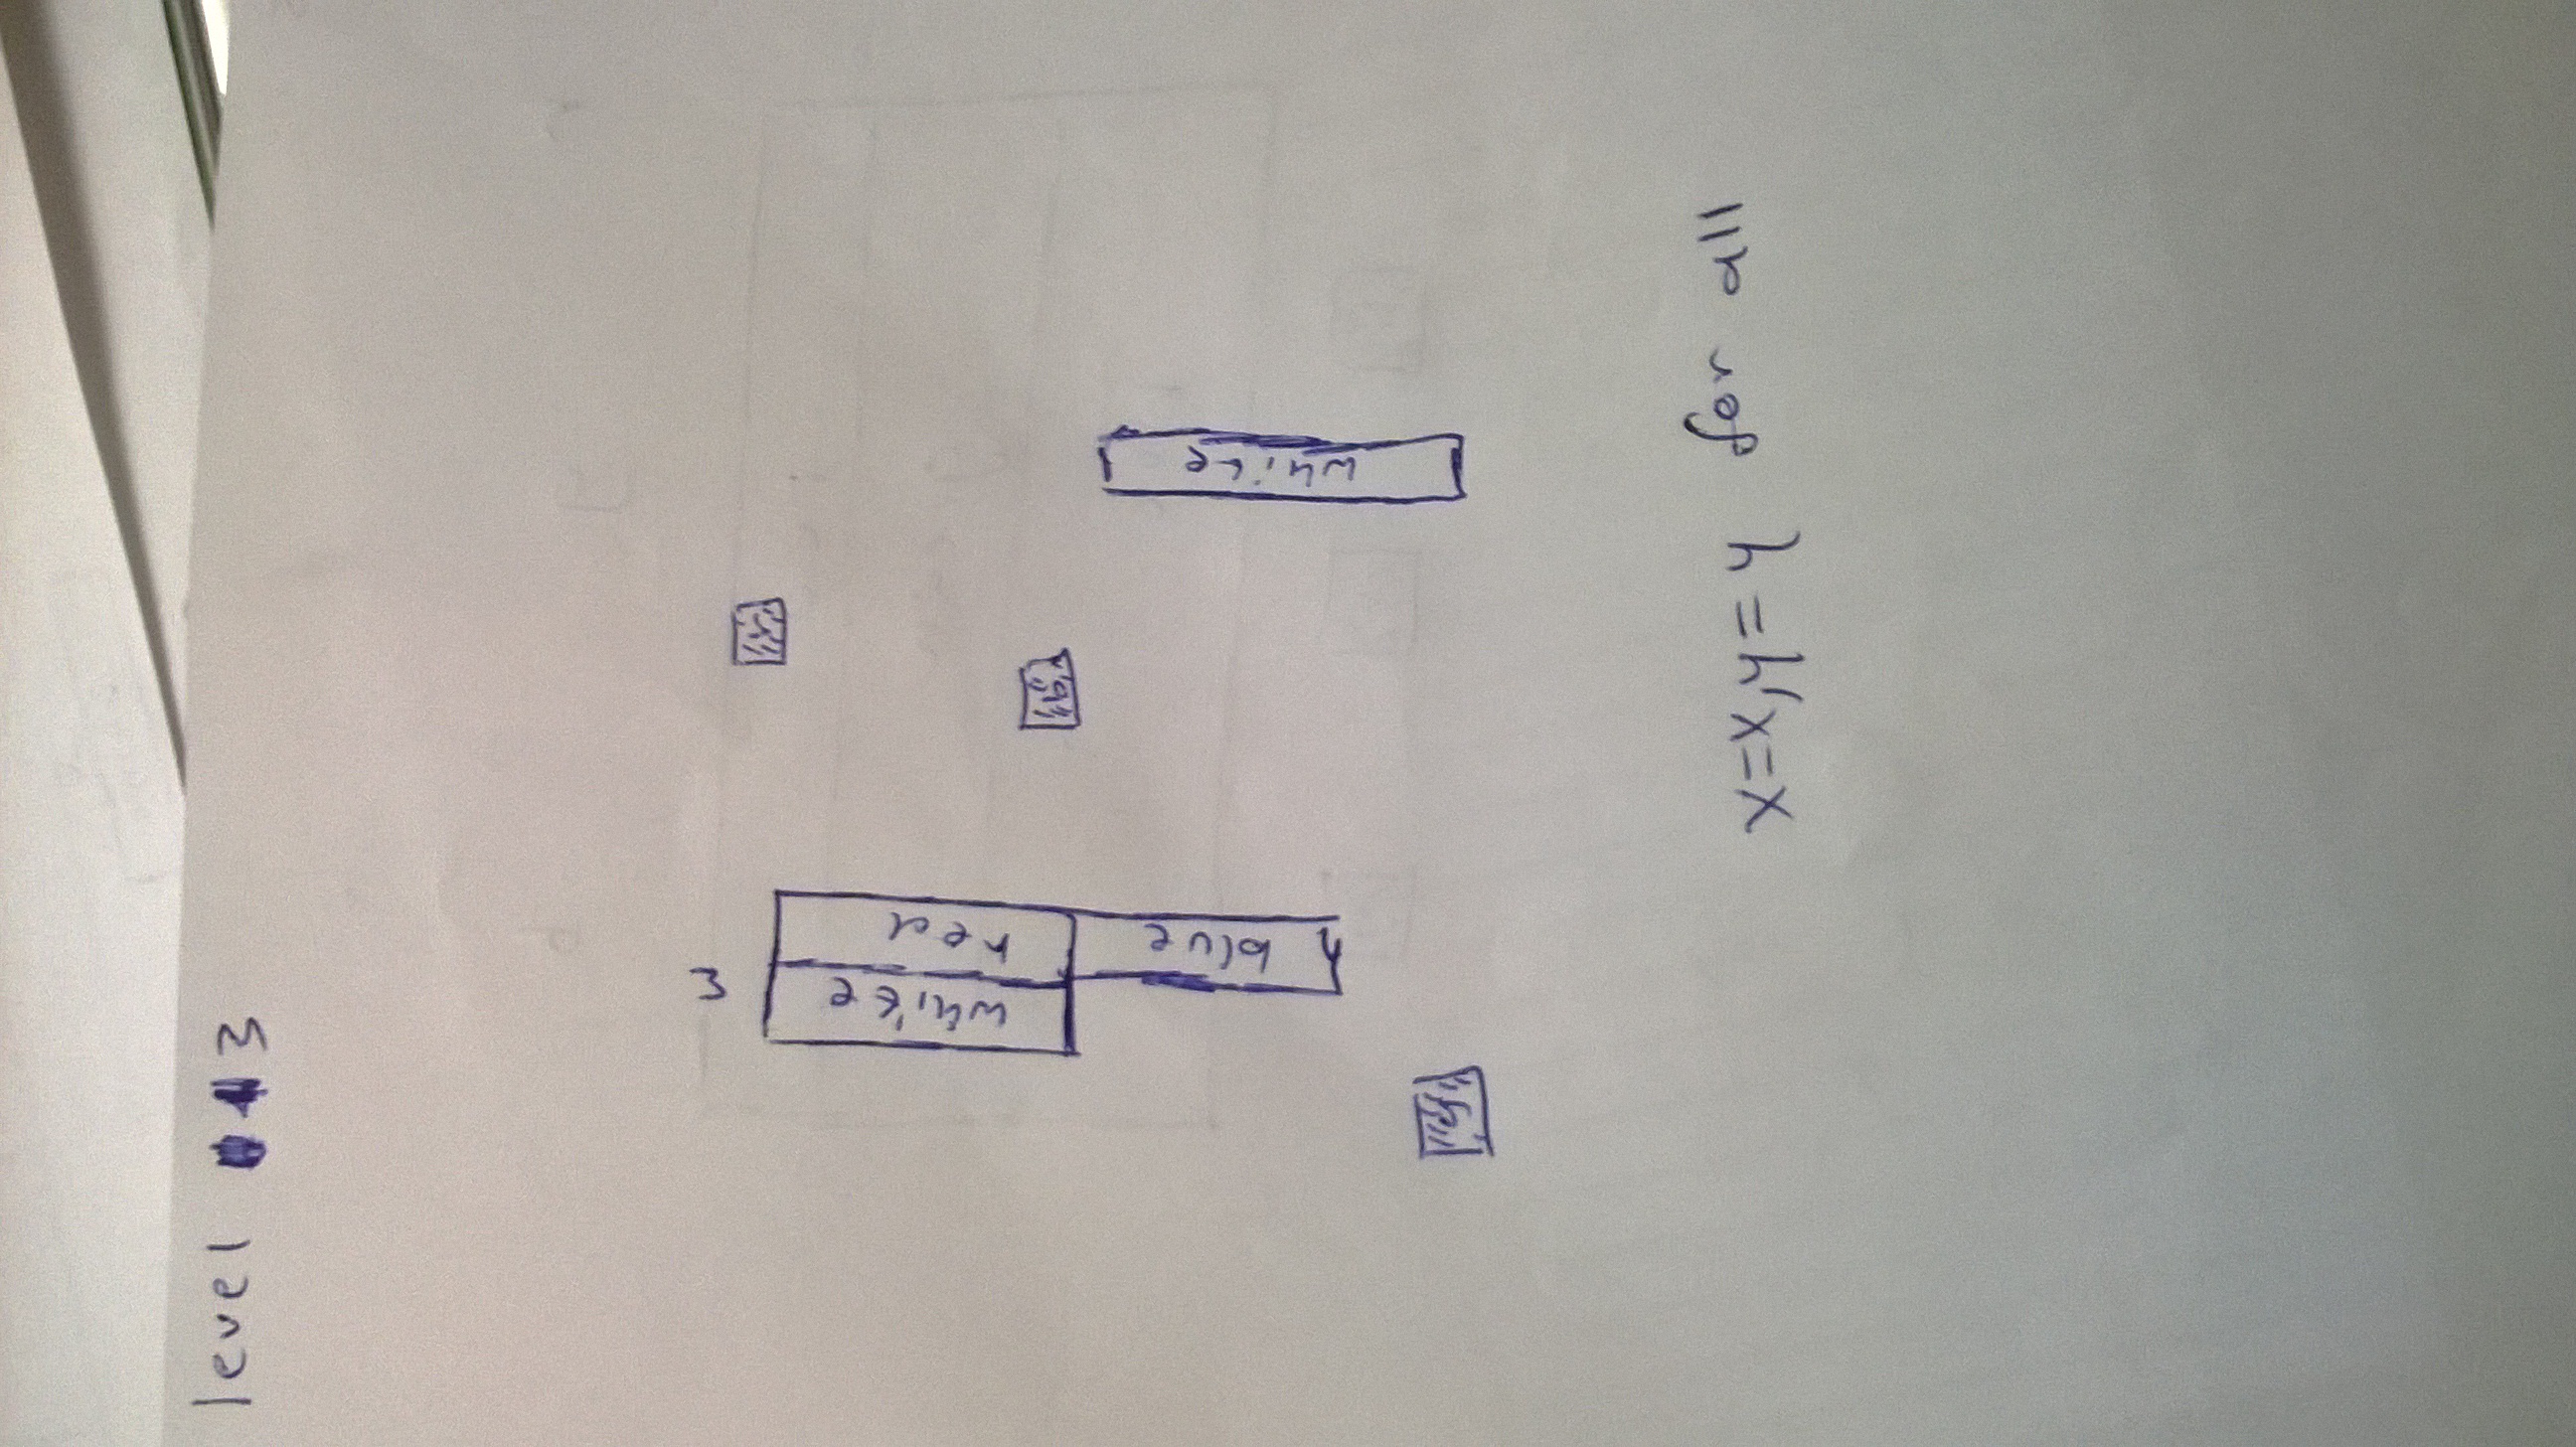 level 3
3
white
red
blue
white
x=x,y=y for all